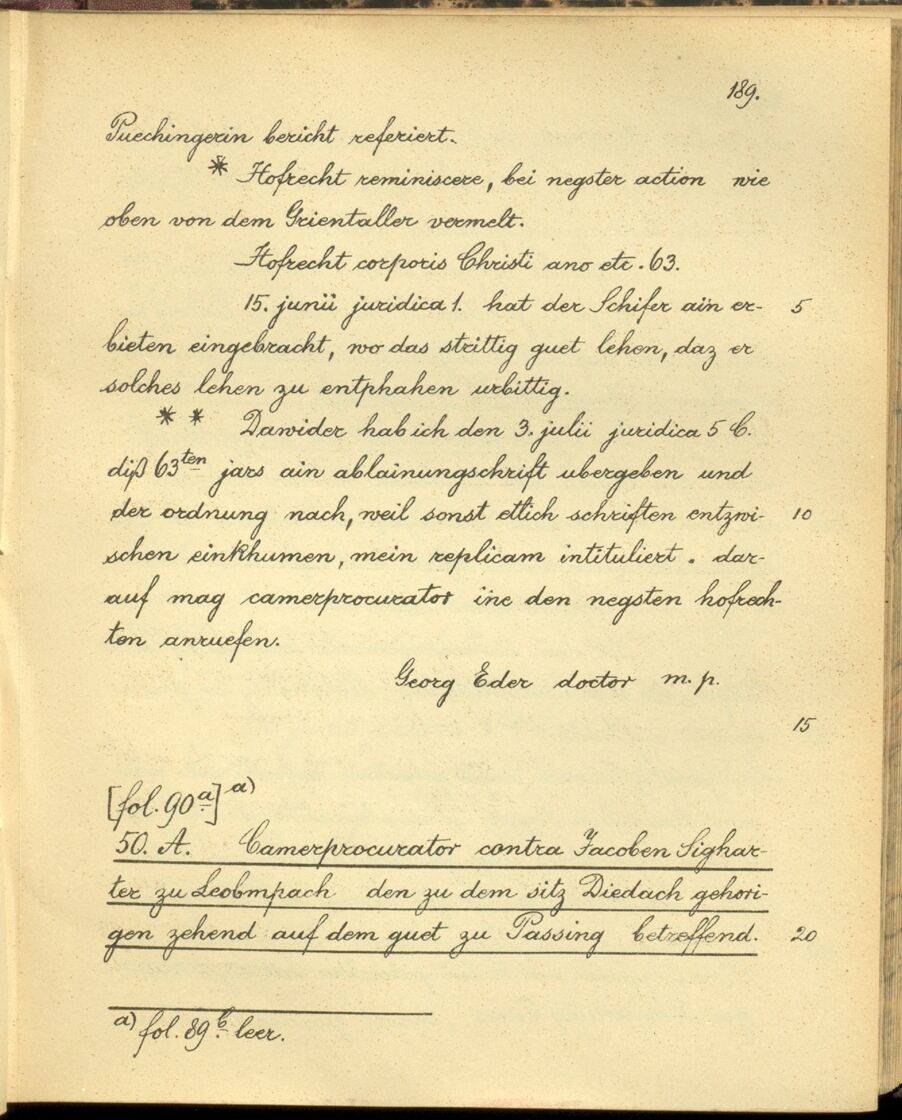 189.
Puechingerin bericht referiert.
* Hofrecht reminiscere, bei negster action wie
oben von dem Grientaller vermelt.
Hofrecht corporis Christi ano etc. 63.
15. junii juridica 1. hat der Schifer ain er- 5
bieten eingebracht, wo das strittig guet lehen, daz er
solches lehen zu entphahen urbittig.
* * Dawider hab ich den 3. julii juridica 5 C.
diß 63ten jars ain ablainungschrift ubergeben und
der ordnung nach, weil sonst etlich schriften entzwi- 10
schen einkhumen, mein replicam intituliert. dar-
auf mag camerprocurator ine den negsten hofrech-
ten anruefen.
Georg Eder doctor m. p.
15
[fol. 90a] a)
50. A. Camerprocurator contra Jacoben Sighar-
ter zu Leobmpach den zu dem sitz Diedach gehori-
gen zehend auf dem guet zu Passing betreffend. 20
a) fol. 89b leer.